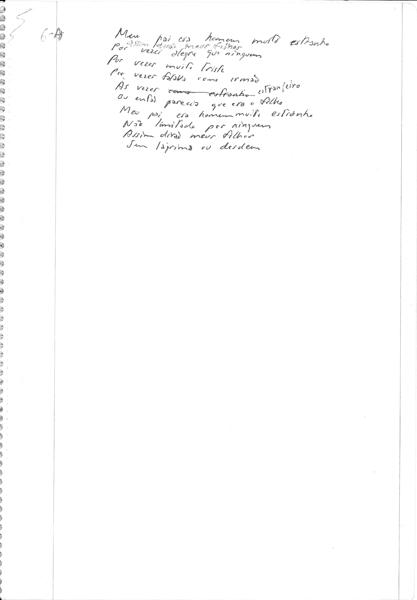 6-A
Meu pai era homem muito estranho
Assim dirão meus filhos
Por vezes alegre que ninguem
Por vezes muito triste
Por vezes falava como irmão
As vezes como estranho estranjeiro
Ou então parecia que era o filho
Meu pai era homem muito estranho
Não limitado por ninguem
Assim dirão meus filhos
Sem lágrima ou desdem